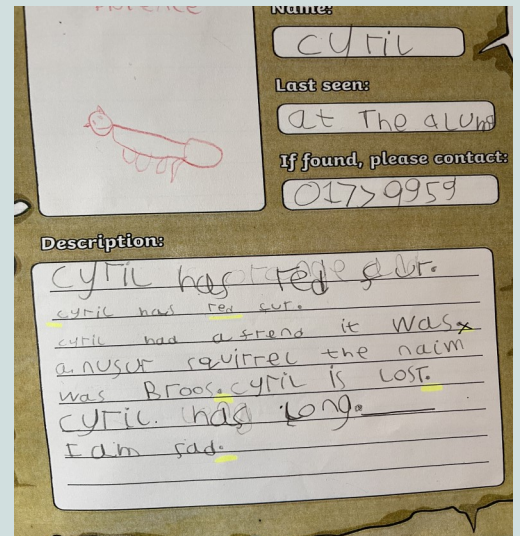 Florence
Name:
cyril
Last seen:
at The aLUm
If found, please contact:
017>9959
Description:
cyril has red fur.
cyril has red fur.
cyril had a frend it was
a nusur squirrel the naim
was Broos. cyril is LOST.
cyril. has Long.
I am sad.